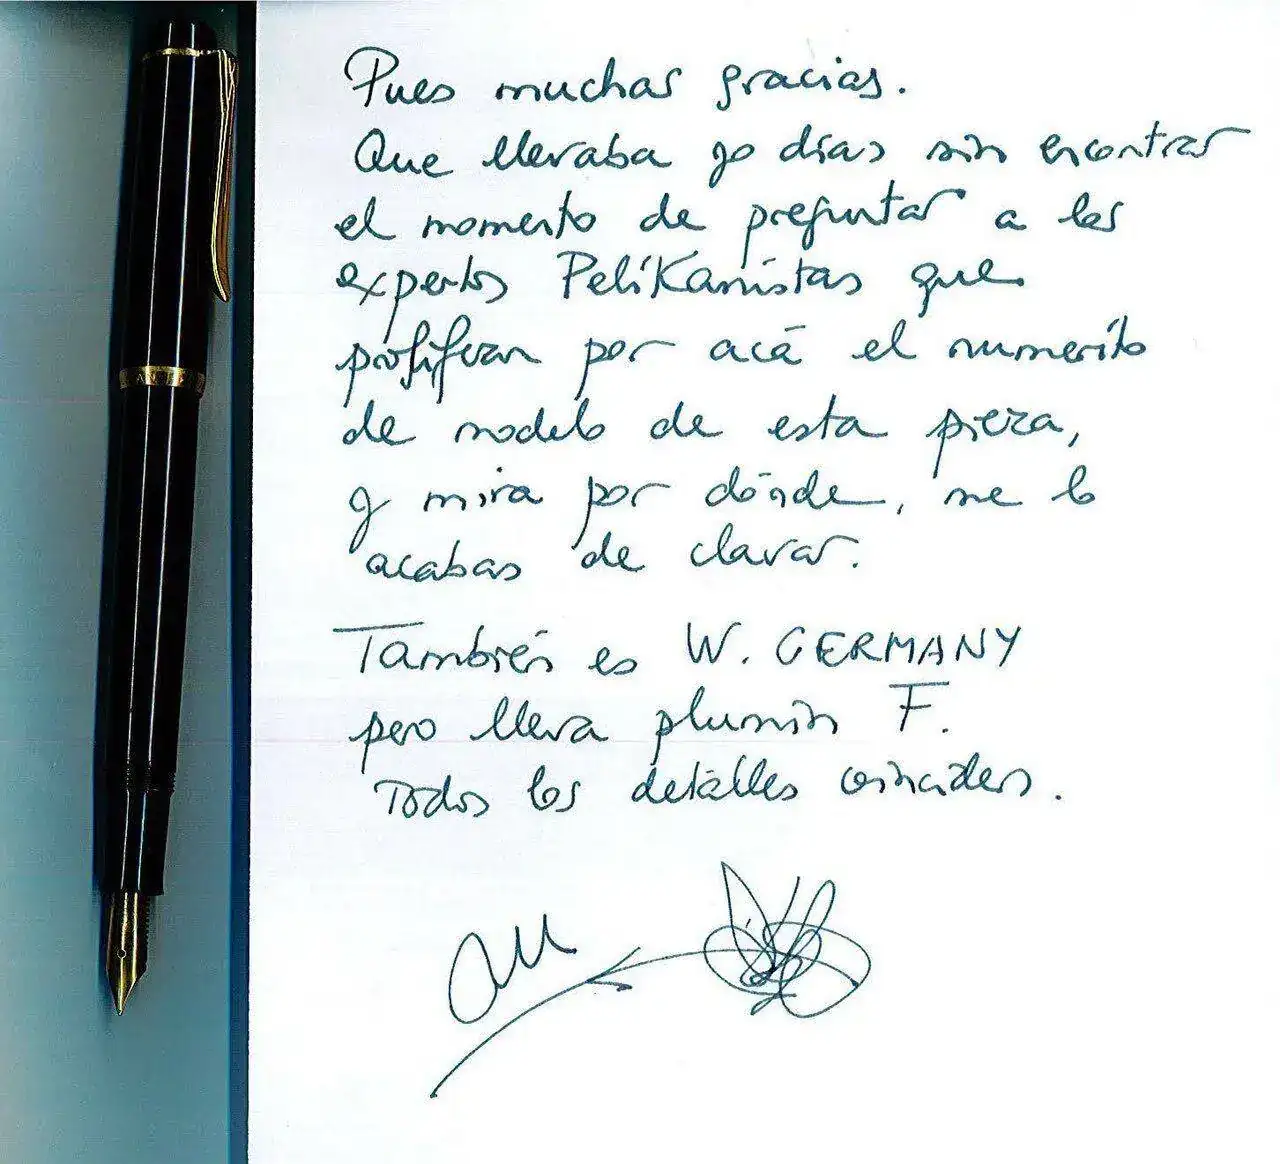 Pues muchas gracias.
Que llevaba yo días sin encontrar
el momento de preguntar a los
expertos Pelikanistas que
proliferan por acá el numerito
de modelo de esta pieza,
y mira por dónde, me lo
acabas de clavar.
También es W. GERMANY
pero lleva plumín F.
Todos los detalles coinciden.